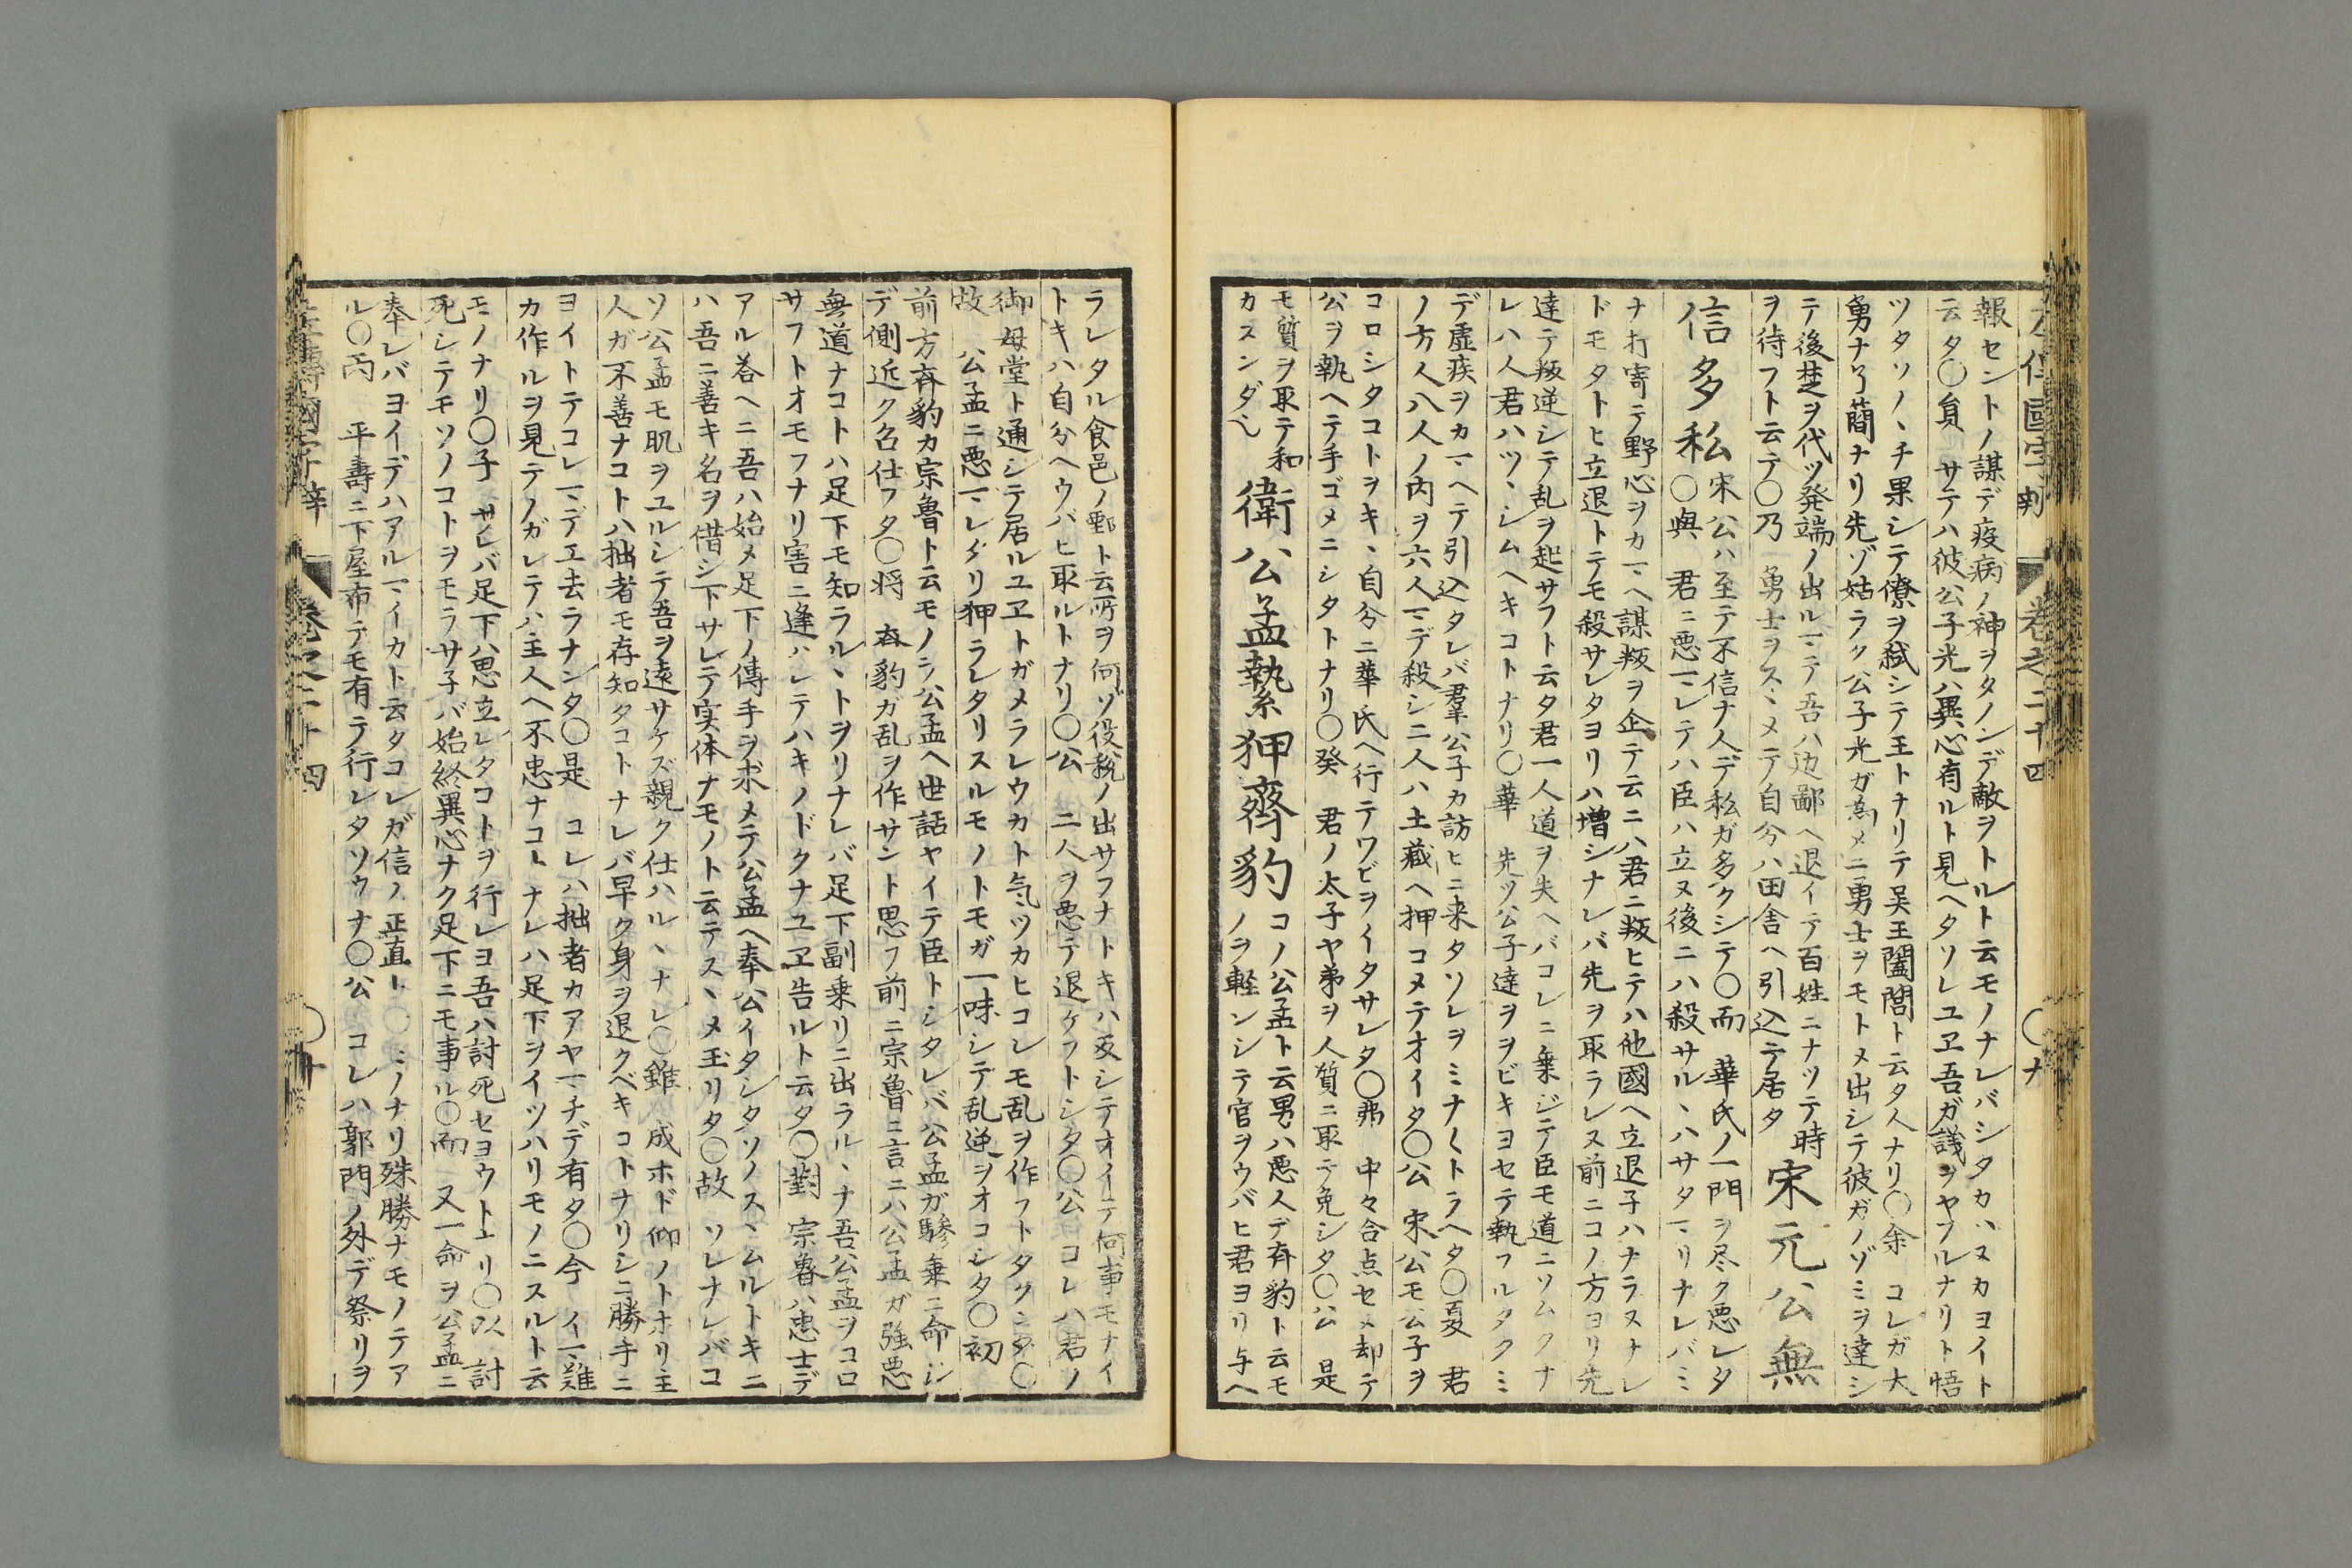 報セントノ謀デ疫病ノ神ヲタノンデ敵ヲトルト云モノナレバシタカハヌカヨイト
云タ〇員 サテハ彼公子光ハ異心有ルト見ヘタソレユヱ吾ガ議ヲヤフルナリト悟
ツタソノヽチ果シテ僚ヲ弑シテ王トナリテ吴王闔閭ト云タ人ナリ〇余 コレガ大
勇ナ了簡ナリ先ゾ姑ラク公子光ガ為メニ勇士ヲモトメ出シテ彼ガノゾミヲ達シ
テ後楚ヲ代ツ発端ノ出ルマテ吾ハ边鄙ヘ退イテ百姓ニナツテ時
ヲ待フト云テ〇乃 勇士ヲスヽメテ自分ハ田舎ヘ引込テ居タ
宋元公無
信多私
宋公ハ至テ不信ナ人デ私ガ多クシテ〇而 華氏ノ一門ヲ尽ク悪レタ
〇與 君ニ悪マレテハ臣ハ立ヌ後ニハ殺サルヽハサタマリナレバミ
ナ打寄テ野心ヲカマヘ謀叛ヲ企テ云ニハ君ニ叛ヒテハ他國ヘ立退子ハナラヌナレ
ドモタトヒ立退トテモ殺サレタヨリハ増シナレバ先ヲ取ラレヌ前ニコノ方ヨリ先
達テ叛逆シテ乱ヲ起サフト云タ君一人道ヲ失ヘバコレニ乗ジテ臣モ道ニソムクナ
レハ人君ハツヽシムヘキコトナリ〇華 先ツ公子達ヲヲビキヨセテ執フルタクミ
デ虚疾ヲカマヘテ引込タレバ羣公子カ訪ヒニ来タソレヲミナ〱トラヘタ〇夏 君
ノ方人八人ノ内ヲ六人マデ殺シ二人ハ土藏ヘ押コメテオイタ〇公 宋公モ公子ヲ
コロシタコトヲキヽ自分ニ華氏ヘ行テワビヲイタサレタ〇弗 中々合点セヌ却テ
公ヲ執ヘテ手ゴメニシタトナリ〇癸 君ノ太子ヤ弟ヲ人質ニ取テ免シタ〇公 是
モ質ヲ取テ和
カスンダヘ
衛公孟縶狎齊豹
コノ公孟ト云男ハ悪人デ斉豹ト云モ
ノヲ軽ンシテ官ヲウバヒ君ヨリ与ヘ
ラレタル食邑ノ鄄ト云所ヲ何ゾ役税ノ出サフナトキハ反シテオイテ何事モナイ
トキハ自分ヘウバヒ取ルトナリ〇公 二人ヲ悪テ退ケフトシタ〇公 コレハ君ノ
御母堂ト通シテ居ルユヱトガメラレウカト気ヅカヒコレモ乱ヲ作フトタクンダ〇
故 公孟ニ悪マレタリ狎ラレタリスルモノトモガ一味シテ乱逆ヲオコシタ〇初
前方斉豹カ宗魯ト云モノヲ公孟ヘ世話ヤイテ臣トシタレバ公孟ガ驂乗ニ命シ
デ側近ク召仕フタ〇将 斉豹ガ乱ヲ作サント思フ前ニ宗魯ニ言ニハ公孟ガ強悪
無道ナコトハ足下モ知ラルヽトヲリナレバ足下副乗リニ出ラルヽナ吾公孟ヲコロ
サフトオモフナリ害ニ逢ハレテハキノドクナユヱ告ルト云タ〇對 宗魯ハ忠士デ
アル答ヘニ吾ハ始メ足下ノ傳手ヲ求メテ公孟ヘ奉公イタシタソノスヽムルトキニ
ハ吾ニ善キ名ヲ借シ下サレテ実体ナモノト云テスヽメ玉リタ〇故 ソレナレバコ
ソ公孟モ肌ヲユルシテ吾ヲ遠サケズ親ク仕ハルヽナレ〇雖 成ホド仰ノトホリ主
人ガ不善ナコトハ拙者モ存知タコトナレバ早ク身ヲ退クベキコトナリシニ勝手ニ
ヨイトテコレマデエ去ラナンダ〇是 コレハ拙者カアヤマチデ有タ〇今 イマ難
カ作ルヲ見テノガレテハ主人ヘ不忠ナコトナレハ足下ヲイツハリモノニスルト云
モノナリ〇子 サレバ足下ハ思立レタコトヲ行レヨ吾ハ討死セヨウトナリ〇以 討
死シテモソノコトヲモラサ子バ始終異心ナク足下ニモ事ル〇而 又一命ヲ公孟ニ
奉レバヨイデハアルマイカト云タコレガ信ノ正直ト ナリ殊勝ナモノテア
ル〇丙 平壽ニ下屋布テモ有テ行レタソウナ〇公 コレハ郭門ノ外デ祭リヲ
卷之二十四